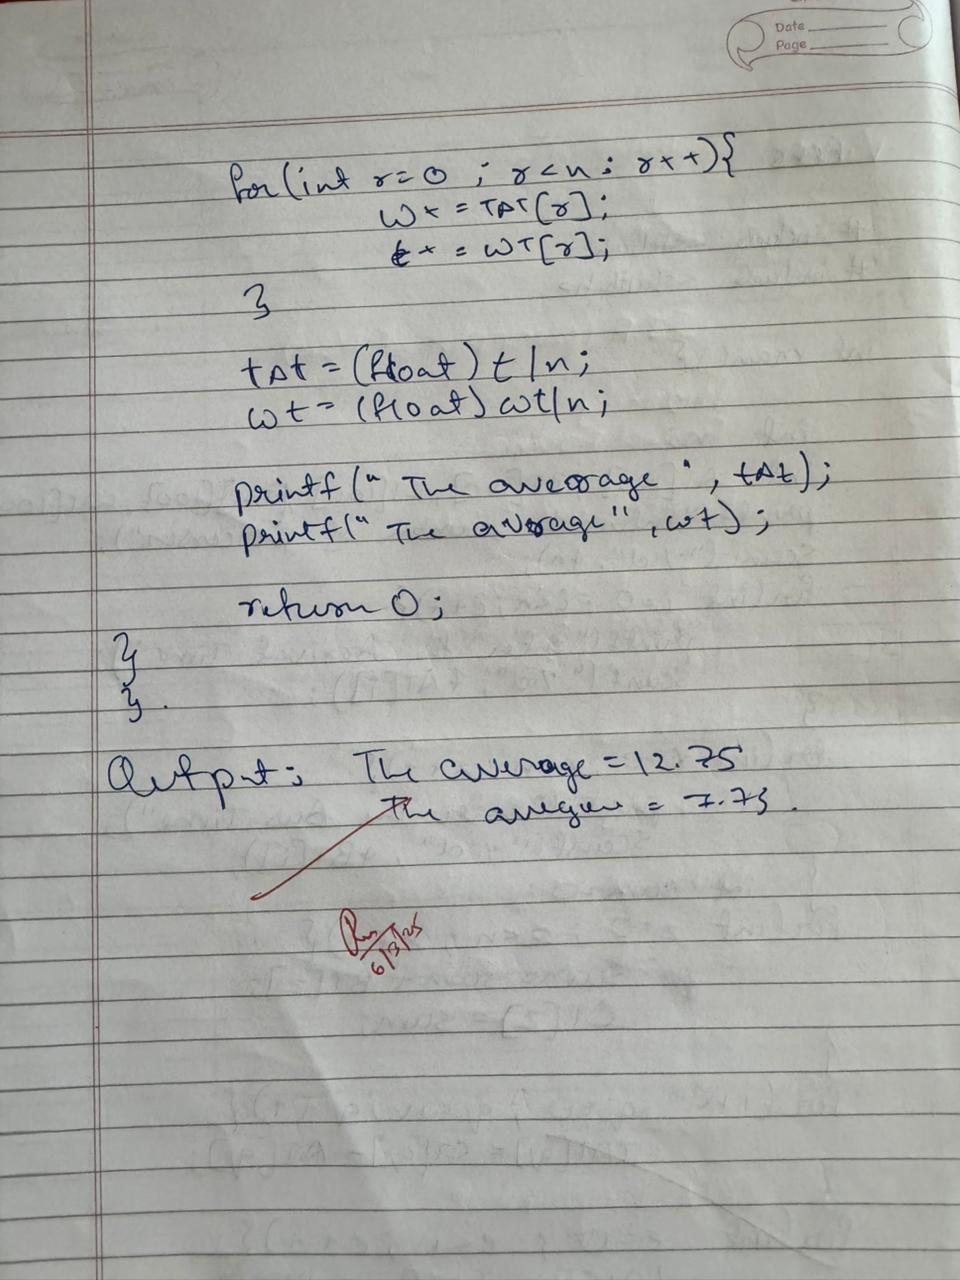 Date
Page
for(int r=0 ; r<n; r++){
w+ = TAT[r];
t+ = WT[r];
}
tAt = (float) t/n;
wt = (float) wt/n;
printf (" The average " , tAt);
printf (" The average" , wt);
return 0;
}
}.
Output: The average = 12.75
The = 7.75.
6/3/25